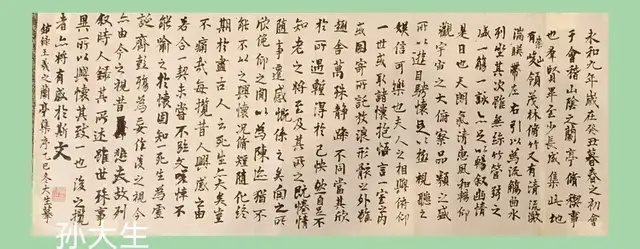 永和九年歲在癸丑暮春之初會
于會稽山陰之蘭亭脩稧事
也羣賢畢至少長咸集此地
有崇峻領茂林脩竹又有清流激
湍暎帶左右引以為流觴曲水
列坐其次雖無絲竹管弦之
盛一觴一詠亦足以暢敘幽情
是日也天朗氣清惠風和暢仰
觀宇宙之大俯察品類之盛
所以遊目騁懷足以極視聽之
娛信可樂也夫人之相與俯仰
一世或取諸懷抱悟言一室之內
或因寄所託放浪形骸之外雖
趣舍萬殊靜躁不同當其欣
於所遇暫得於己怏然自足不
知老之將至及其所之既惓情
隨事遷感慨係之矣向之所
欣俛仰之閒以為陳迹猶不
能不以之興懷況脩短隨化終
期於盡古人云死生亦大矣豈
不痛哉每攬昔人興感之由
若合一契未嘗不臨文嗟悼不
能喻之於懷固知一死生為虛
誕齊彭殤為妄作後之視今
亦由今之視昔悲夫故列
敘時人錄其所述雖世殊事
異所以興懷其致一也後之攬
者亦將有感於斯文
錄王羲之蘭亭集序乙巳冬大生
孙大生